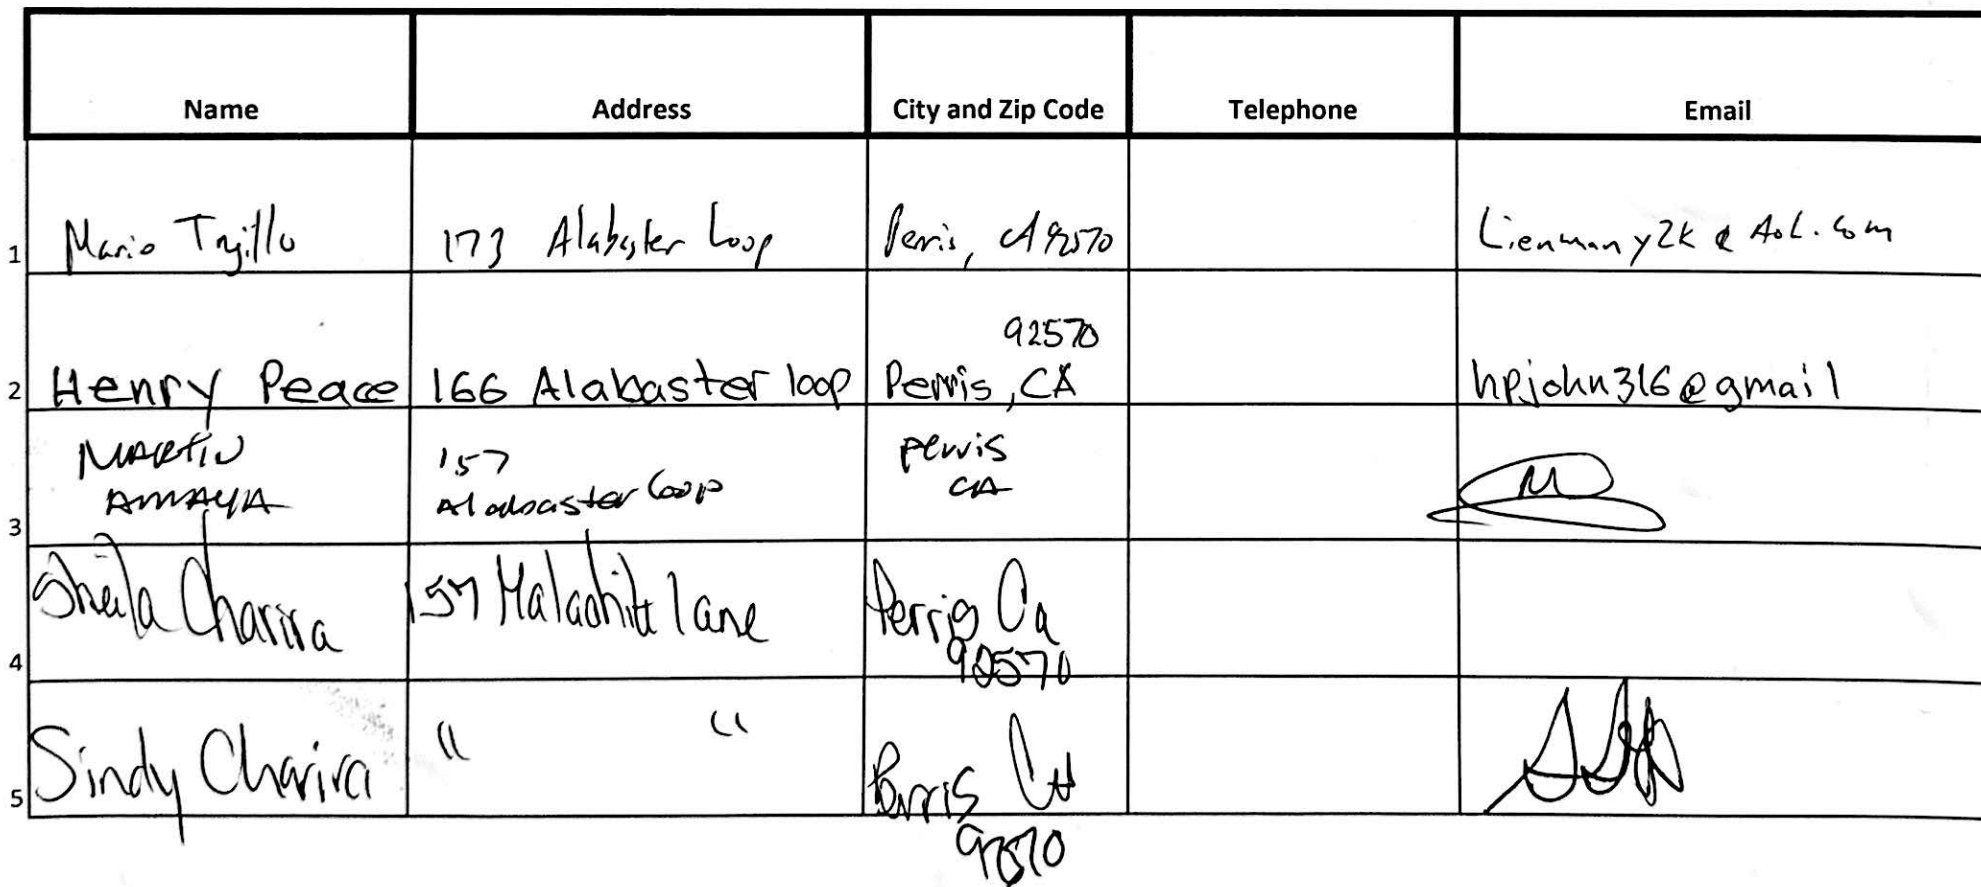 Name Address City and Zip Code Telephone Email
1 Mario Trujillo 173 Alabaster Loop Perris, CA 92570 Lienmany2k@Aol.com
92570
2 Henry Peace 166 Alabaster loop Perris, CA hpjohn316@gmail
MARTIN 157 perris
AMAYA Alabaster Loop CA
3
Sheila Charira 157 Malachite lane Perris Ca
4 92570
Sindy Charira " " Perris CA
5
92570